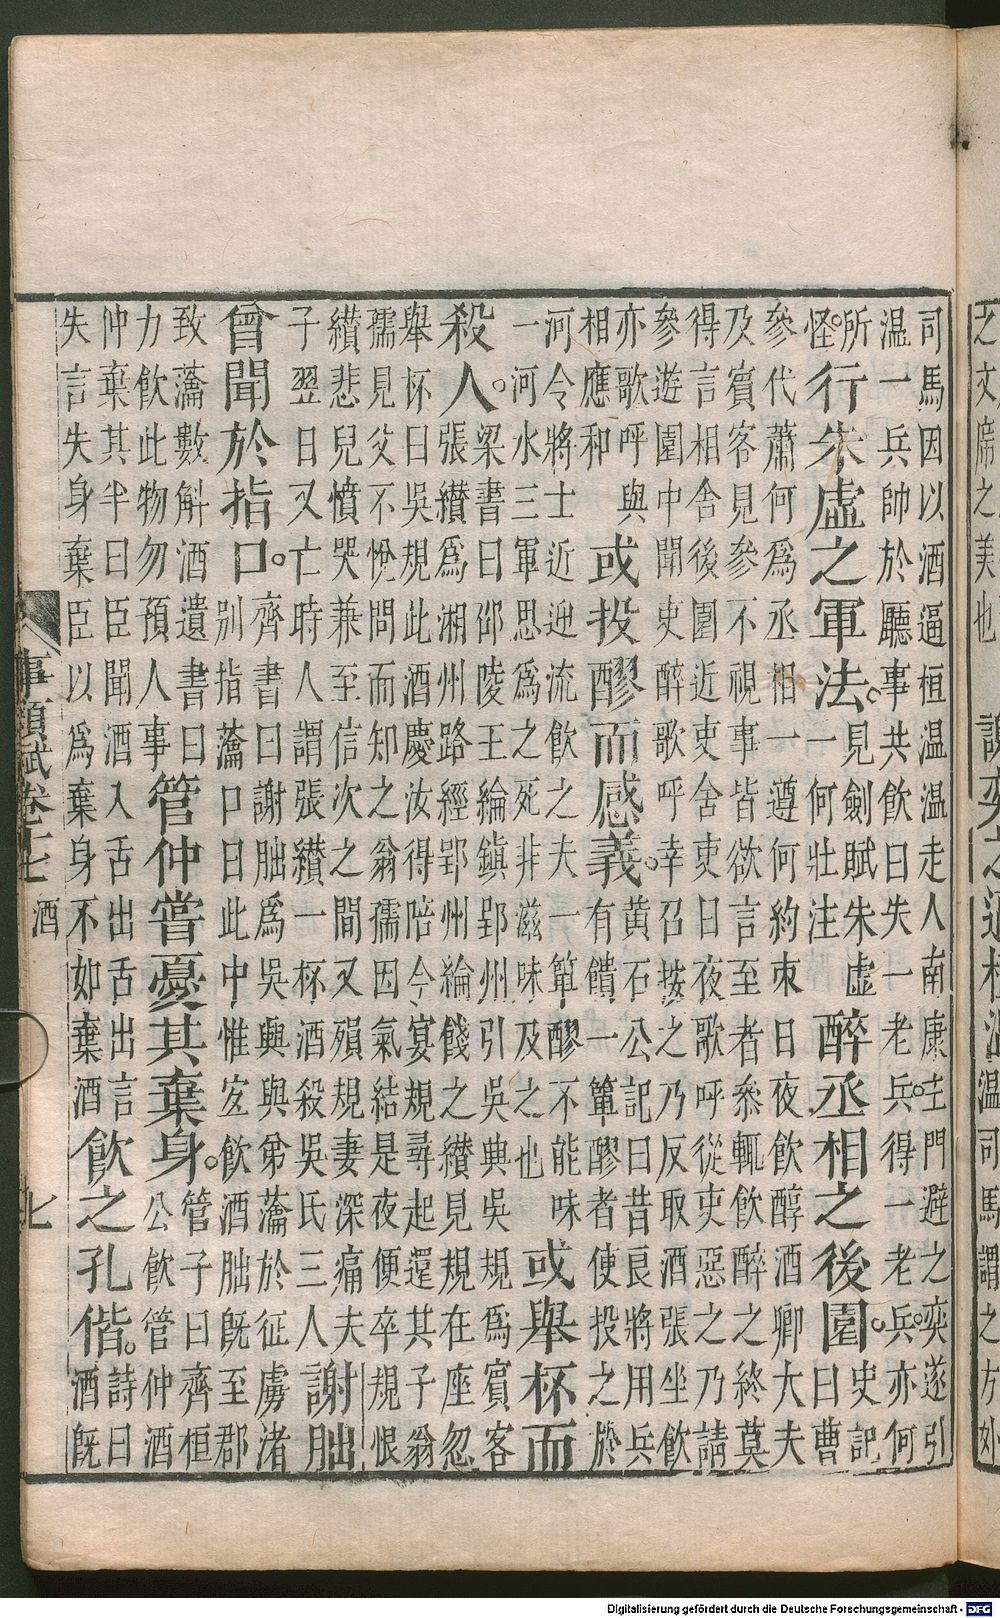 之文席之美也
温司馬謂之方外
司馬因以酒逼桓温温走人南康主門避之奕遂引
温一兵帥於廳事共飲曰失一老兵得一老兵亦何
所
怪
行朱虛之軍法。
見劍賦朱虛
一何壯注
醉丞相之後園。
史記
曰曹
參代蕭何為丞相一遵何約束日夜飲醇酒卿大夫
及賓客見參不視事皆欲言至者參輒飲醉之終莫
得言相舍後園近吏舍吏日夜歌呼從吏惡之乃請
參遊園中聞吏醉歌呼幸召按之乃反取酒張坐飲
亦歌呼與
相應和
或投醪而感義。
黃石公記曰昔良將用兵
有饋一簞醪者使投之於
河令將士近迎流飲之夫一簞醪不能味
一河水三軍思為之死非滋味及之也
或舉杯而
殺人。
梁書曰邵陵王綸鎮郢州引吳典吳規為賓客
張纘為湘州路經郢州綸餞之纘見規在座忽
舉杯曰吳規此酒慶汝得陪今宴規尋起還其子翁
孺見父不悅問而知之翁孺因氣結是夜便卒規恨
纘悲兒憤哭兼至信次之間又殞規妻深痛夫
子翌日又亡時人謂張纘一杯酒殺吳氏三人
謝朏
曾聞於指口。
齊書曰謝朏為吳興與弟瀹於征虜渚
別指瀹口曰此中惟宜飲酒朏既至郡
致瀹數斛酒遺書曰
力飲此物勿預人事
管仲嘗憂其棄身。
管子曰齊桓
公飲管仲酒
仲棄其半曰臣聞酒入舌出舌出言
失言失身棄臣以為棄身不如棄酒
飲之孔偕。
詩曰
酒既
事類賦卷十七 酒 七
Digitalisierung gefördert durch die Deutsche Forschungsgemeinschaft - DFG